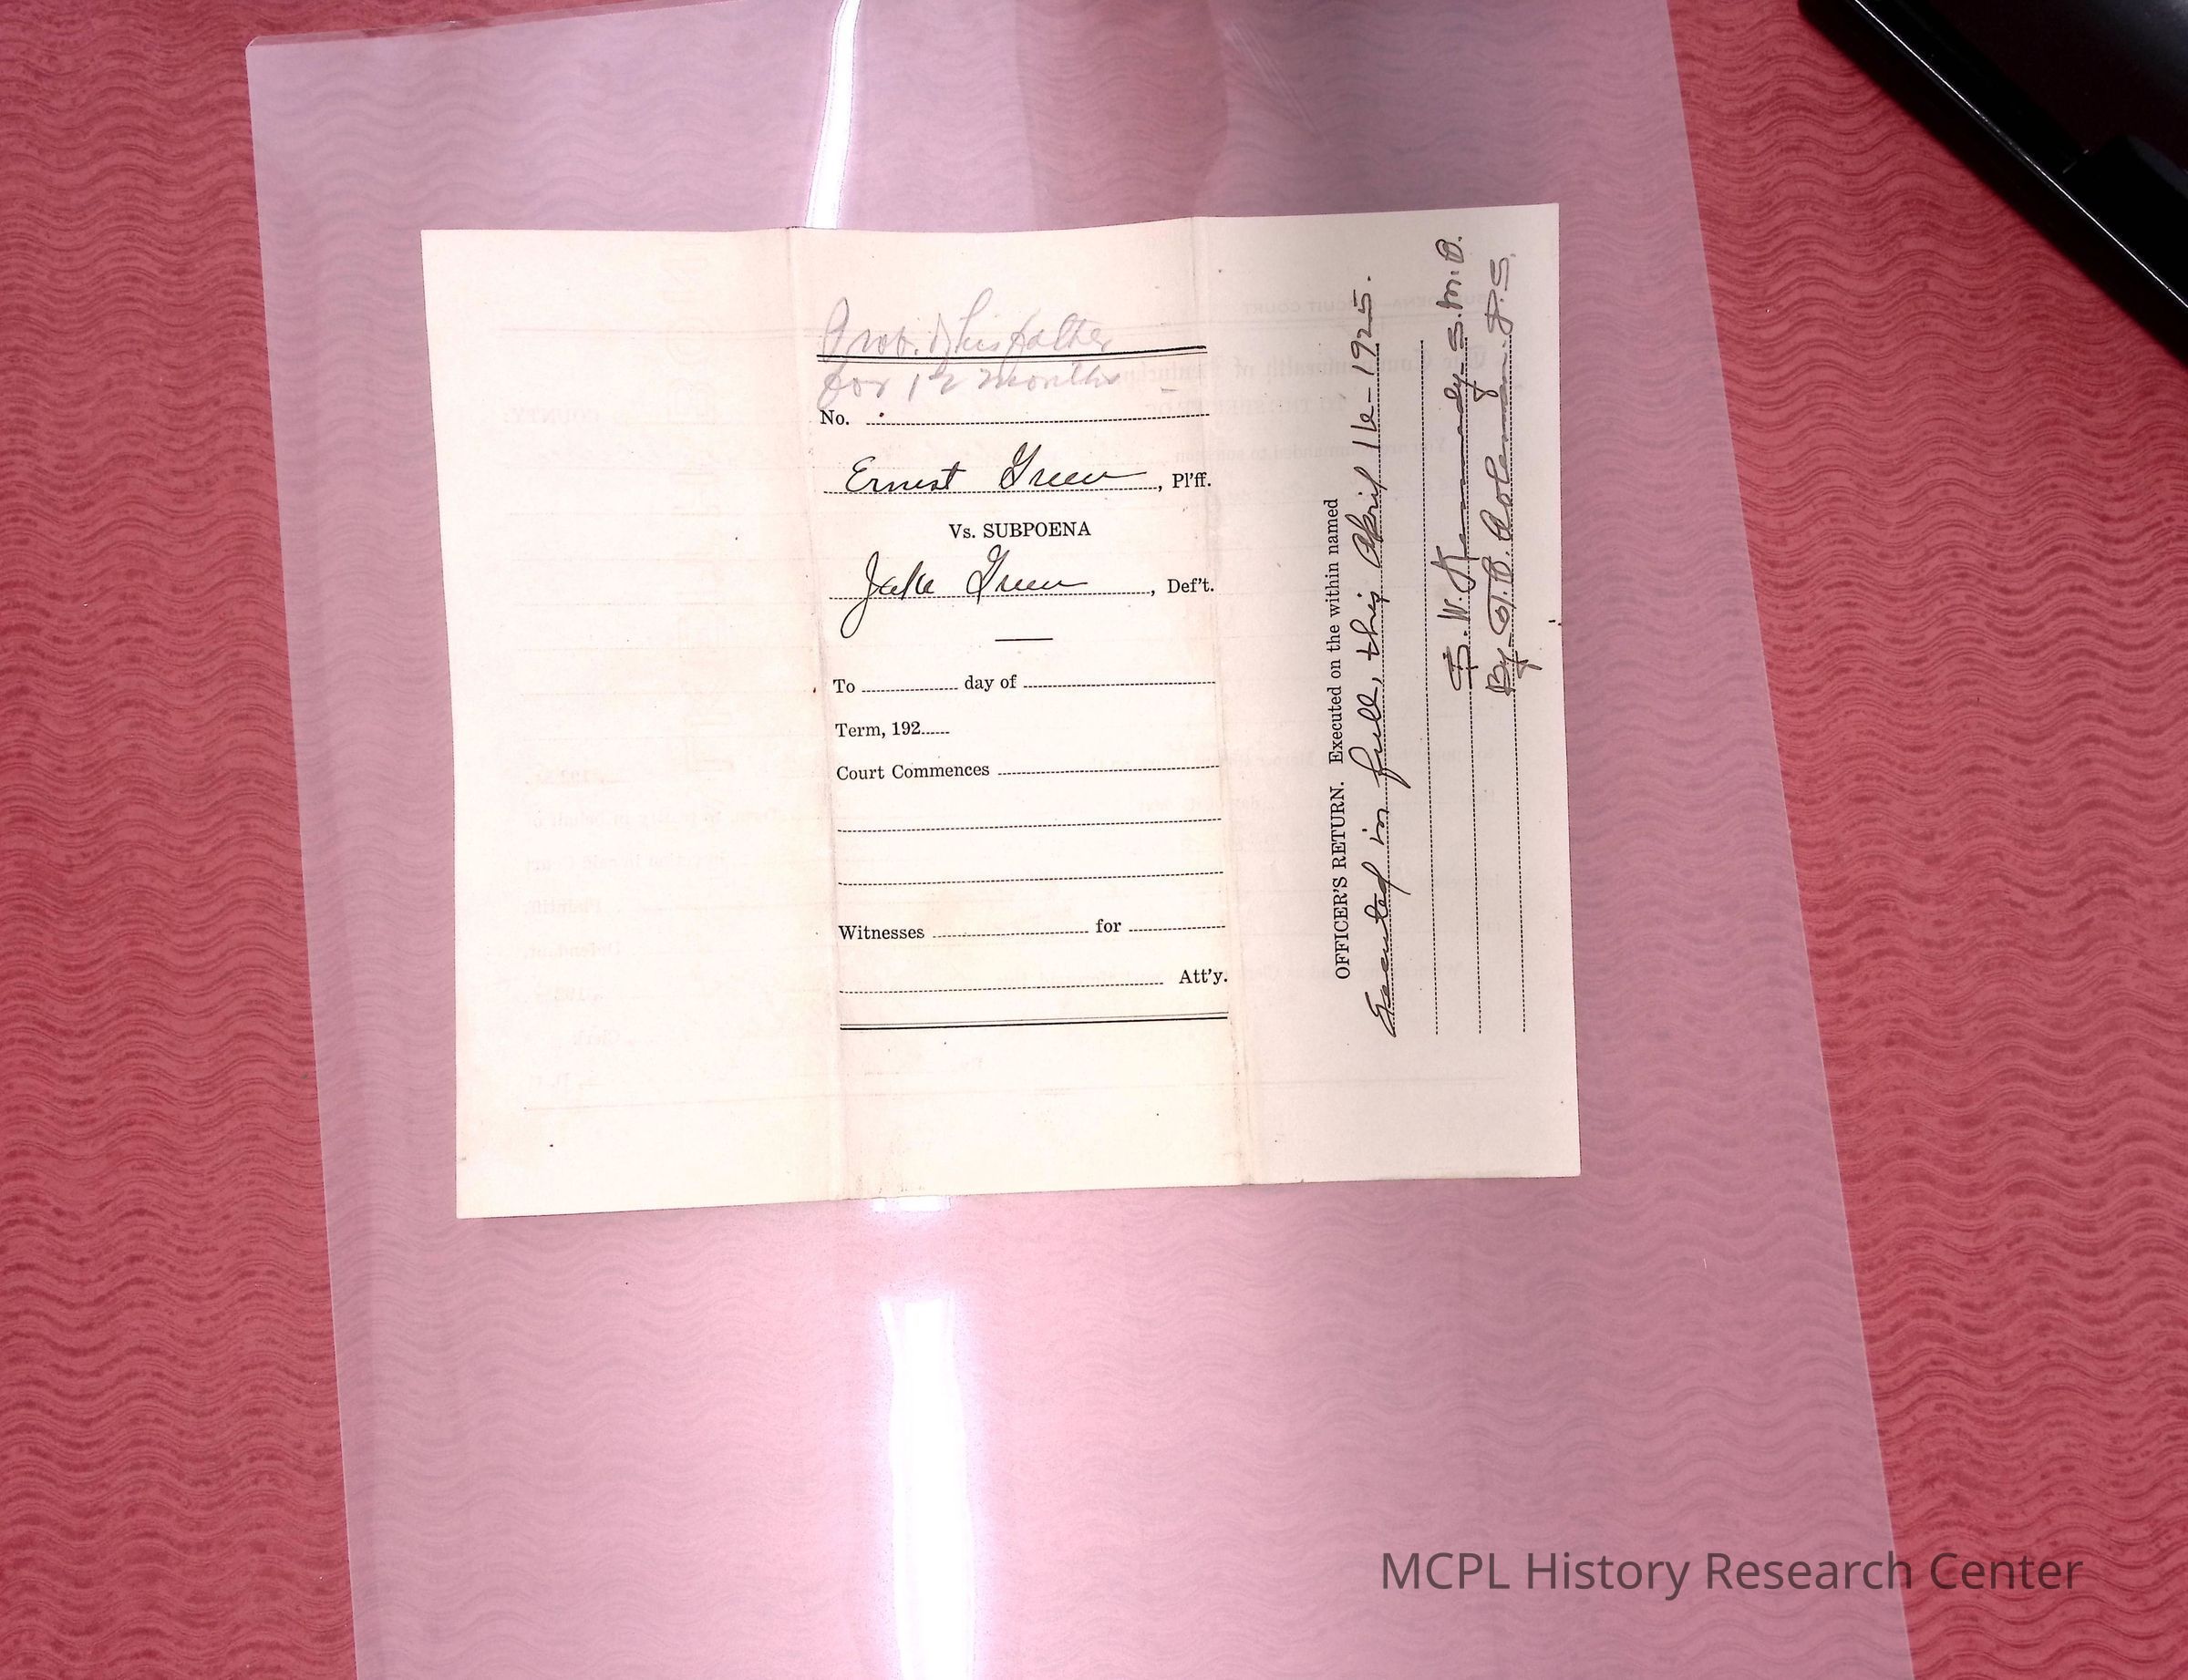 Prob. to his father
for 12 months -
No.
Ernest Green, Pl'ff.
Vs. SUBPOENA
Jake Green, Def't.
To day of
Term, 192
Court Commences
Witnesses for
Att'y.
OFFICER'S RETURN. Executed on the within named
Executed in full, this April 16-1925.
S.M.C.
By T.B. Coleman D.S.
MCPL History Research Center